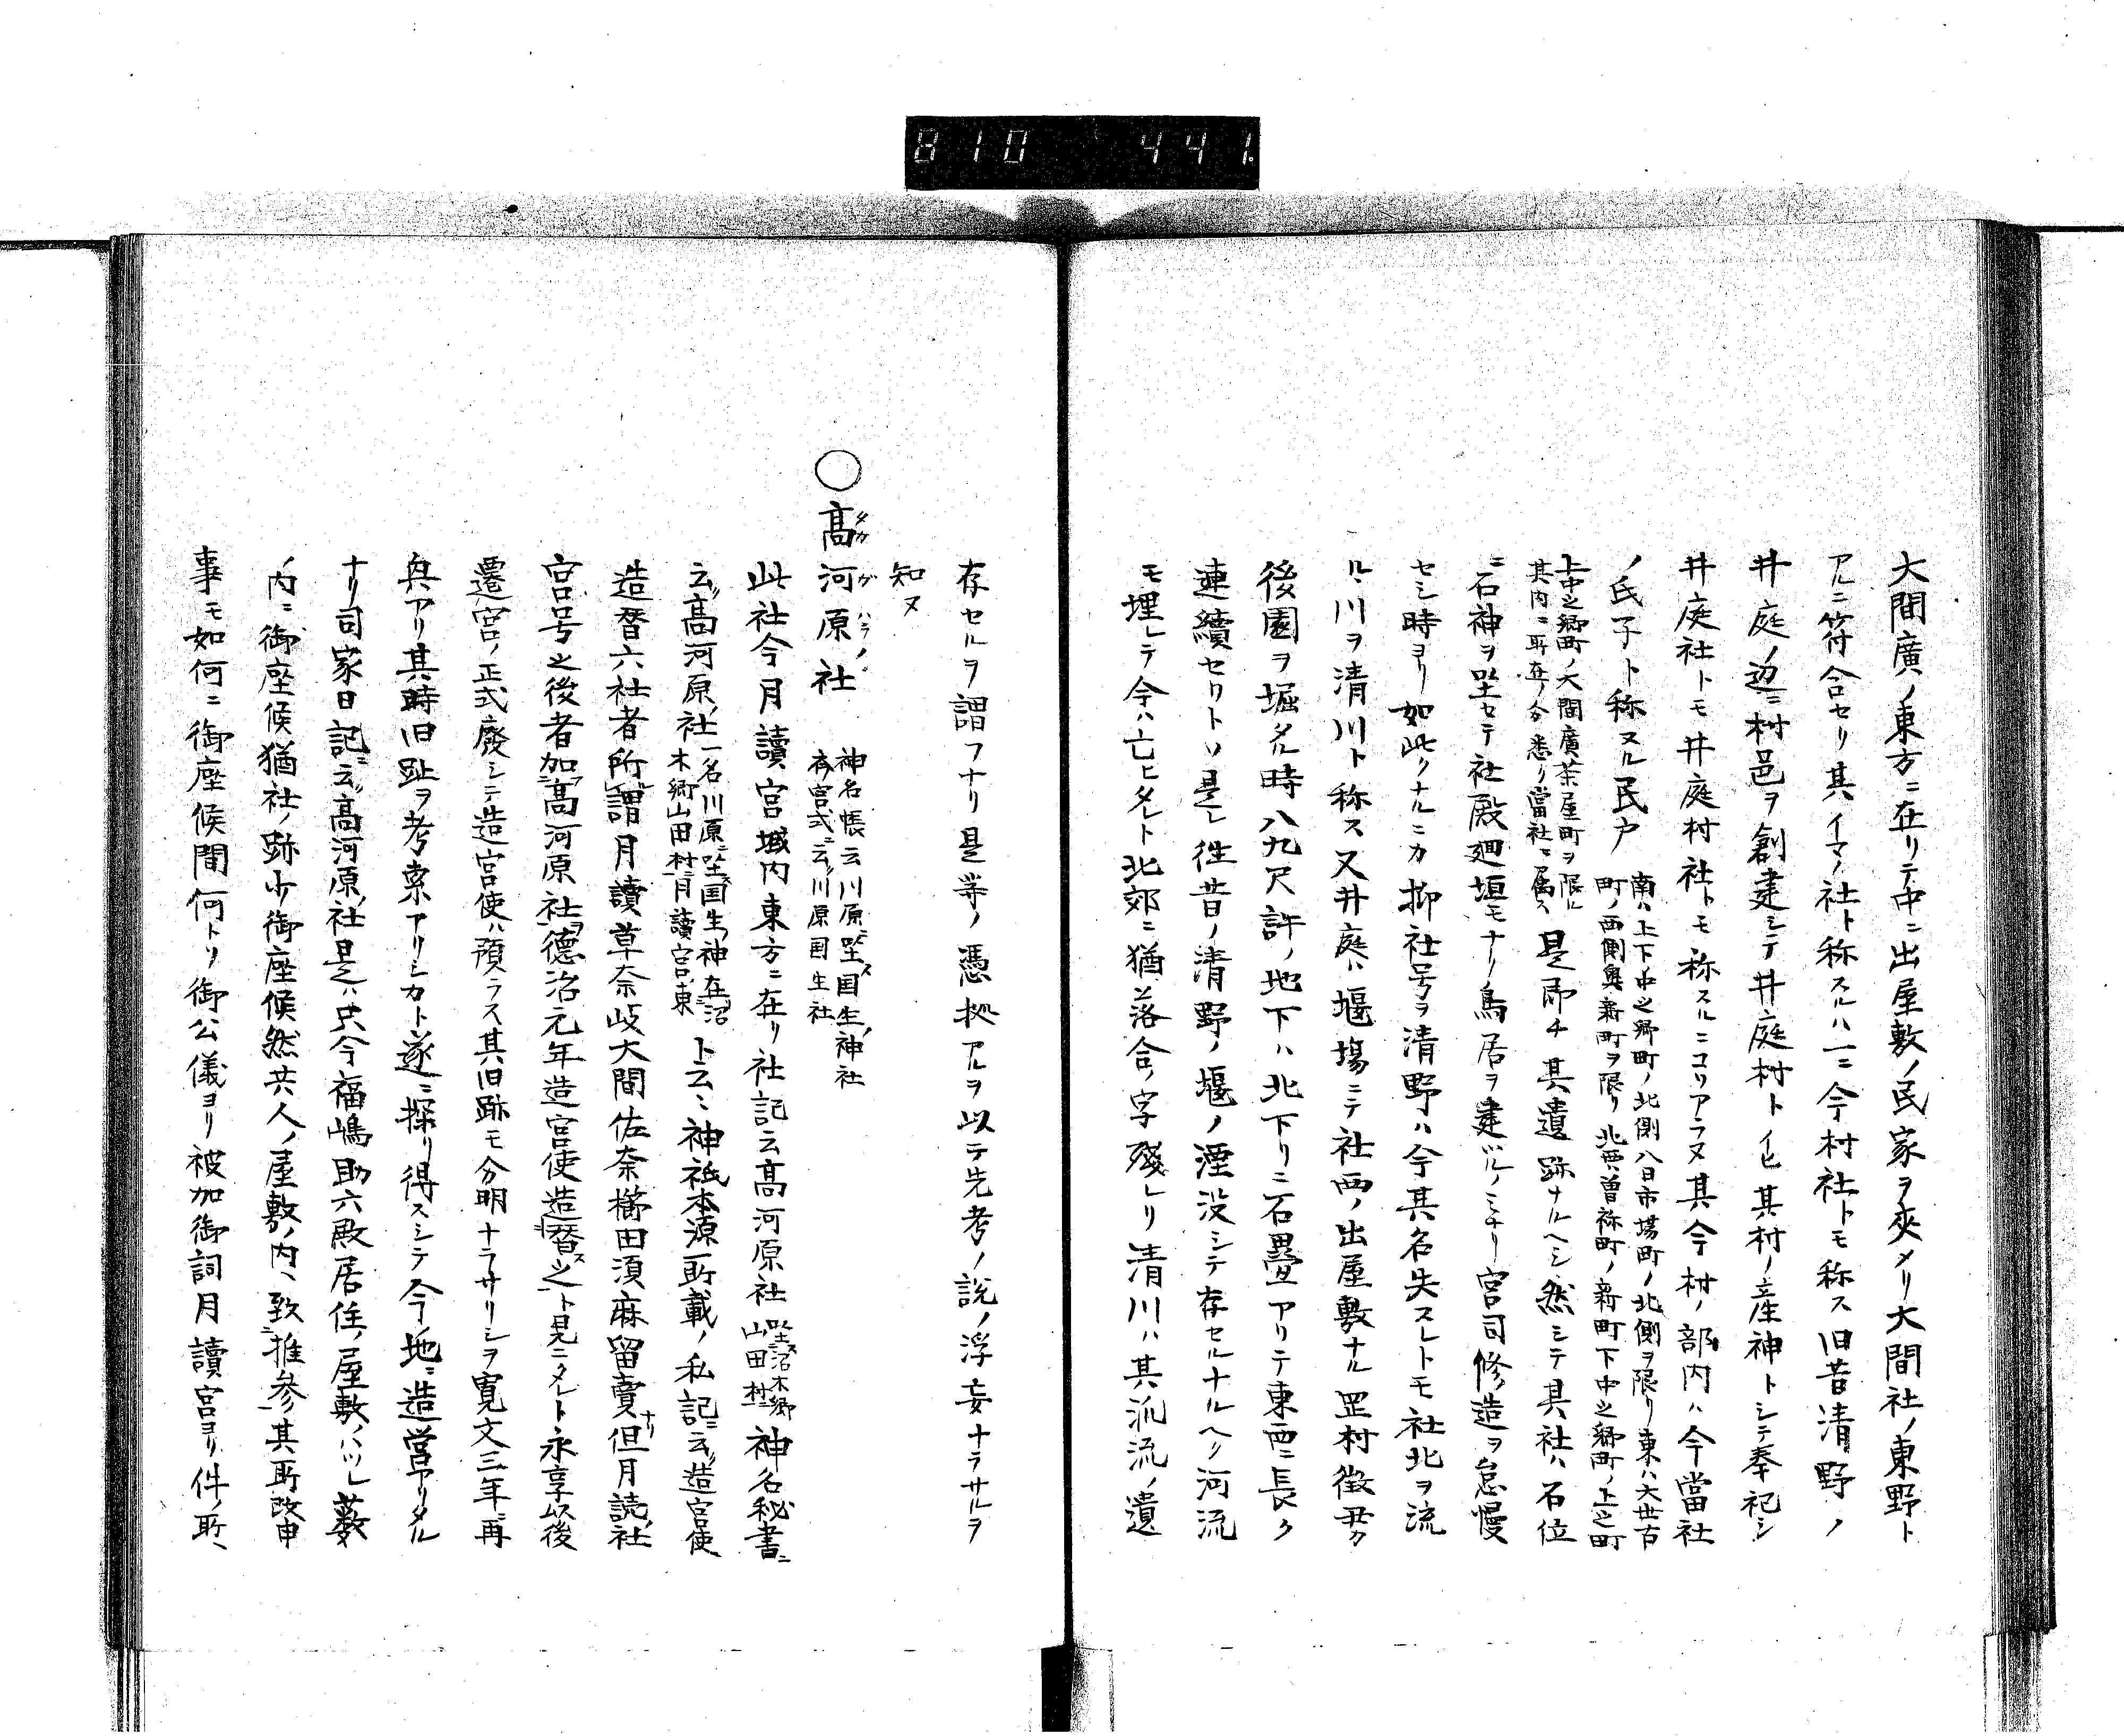 810 441.
大間廣ノ東方ニ在リテ中ニ出屋敷ノ民家ヲ夾メリ大間社ノ東野ト
アルニ符合セリ其イマノ社ト称スルハ一ニ今村社トモ称ス旧昔清野ノ
井庭ノ辺ニ村邑ヲ創建シテ井庭村トイヒ其村ノ産神トシテ奉祀シ
井庭社トモ井庭村社トモ称スルニコリアラヌ其今村ノ部内ハ今當社
ノ氏子ト称スル民戸
南ハ上下中之郷町ノ北側八日市場町ノ北側ヲ限リ東ハ大世古
町ノ西側奥新町ヲ限リ北西ハ曽祢町ノ新町下中之郷町ノ上之町
上中之郷町ノ大間廣茶屋町ヲ限ル
其内ニ所在ノ分悉ク當社ニ属ス
是即チ其遺跡ナルヘシ然シテ其社ハ石位
ニ石神ヲ坐セテ社殿廻垣モナク鳥居ヲ建ツルノミナリ宮司修造ヲ怠慢
セシ時ヨリ如此クナルニカ抑社号ヲ清野ハ今其名失スレトモ社北ヲ流
ルヽ川ヲ清川ト称ス又井庭ハ堰場ニテ社西ノ出屋敷ナル岡村徴丑カ
後園ヲ堀タル時八九尺許ノ地下ハ北下リニ石疊アリテ東西ニ長ク
連續セリトソ是レ徃昔ノ清野ノ堰ノ湮没シテ存セルナルヘク河流
モ埋レテ今ハ亡ヒタレト北郊ニ猶落合ノ字残レリ清川ハ其派流ノ遺
存セルヲ謂フナリ是等ノ憑拠アルヲ以テ先考ノ説ノ浮妄ナラサルヲ
知ヌ
○高河原社
タカ ガ ハラノ
神名帳云川原坐国生神社
本宮式ニ云川原国生社
此社今月讀宮域内東方ニ在リ社記云高河原社
坐沼木郷
山田村
神名秘書ニ
云高河原ノ社
一名川原ニ坐国生神在沼
木郷山田村月讀宮東
ト云ヽ神祇本源所載ノ私記ニ云造宮使
造暦六社者所謂月讀草奈岐大間佐奈櫛田須麻留賣ナリ但月読社
宮号之後者加高河原社ヲ德治元年造宮使造暦之ト見ニタレト永享以後
遷宮ノ正式廢シテ造宮使ハ預ラス其旧跡モ分明ナラサリシヲ寛文三年ニ再
興アリ其時旧趾ヲ考索アリシカト遂ニ探リ得スシテ今ノ地ニ造営アリタル
ナリ司家日記ニ云高河原ノ社是ハ只今福嶋助六殿居住ノ屋敷ノハツレ薮
ノ内ニ御座候猶社ノ跡少御座候然共人ノ屋敷ノ内ヽ致推参其所改申
事モ如何ニ御座候間何トソ御公儀ヨリ被加御詞月讀宮ヨリ件ノ所ヽ